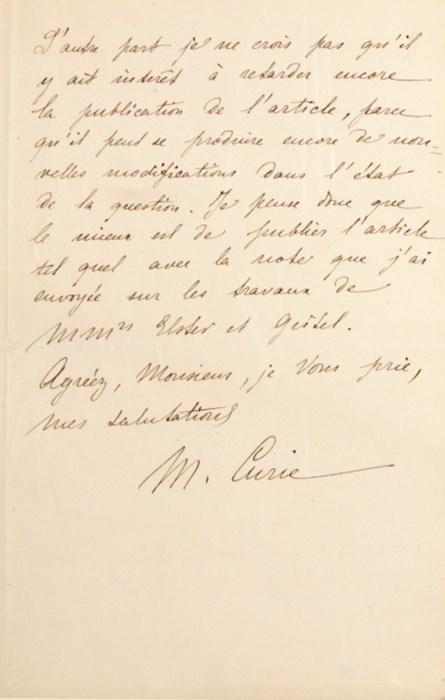 D'autre part je ne crois pas qu'il
y ait intérêt à retarder encore
la publication de l'article, parce
qu'il peut se produire encore de nou-
velles modifications dans l'état
de la question. Je pense donc que
le mieux est de publier l'article
tel quel avec la note que j'ai
envoyée sur les travaux de
MMrs Elster et Geitel.
Agréez, Monsieur, je Vous prie,
mes salutations
M. Curie